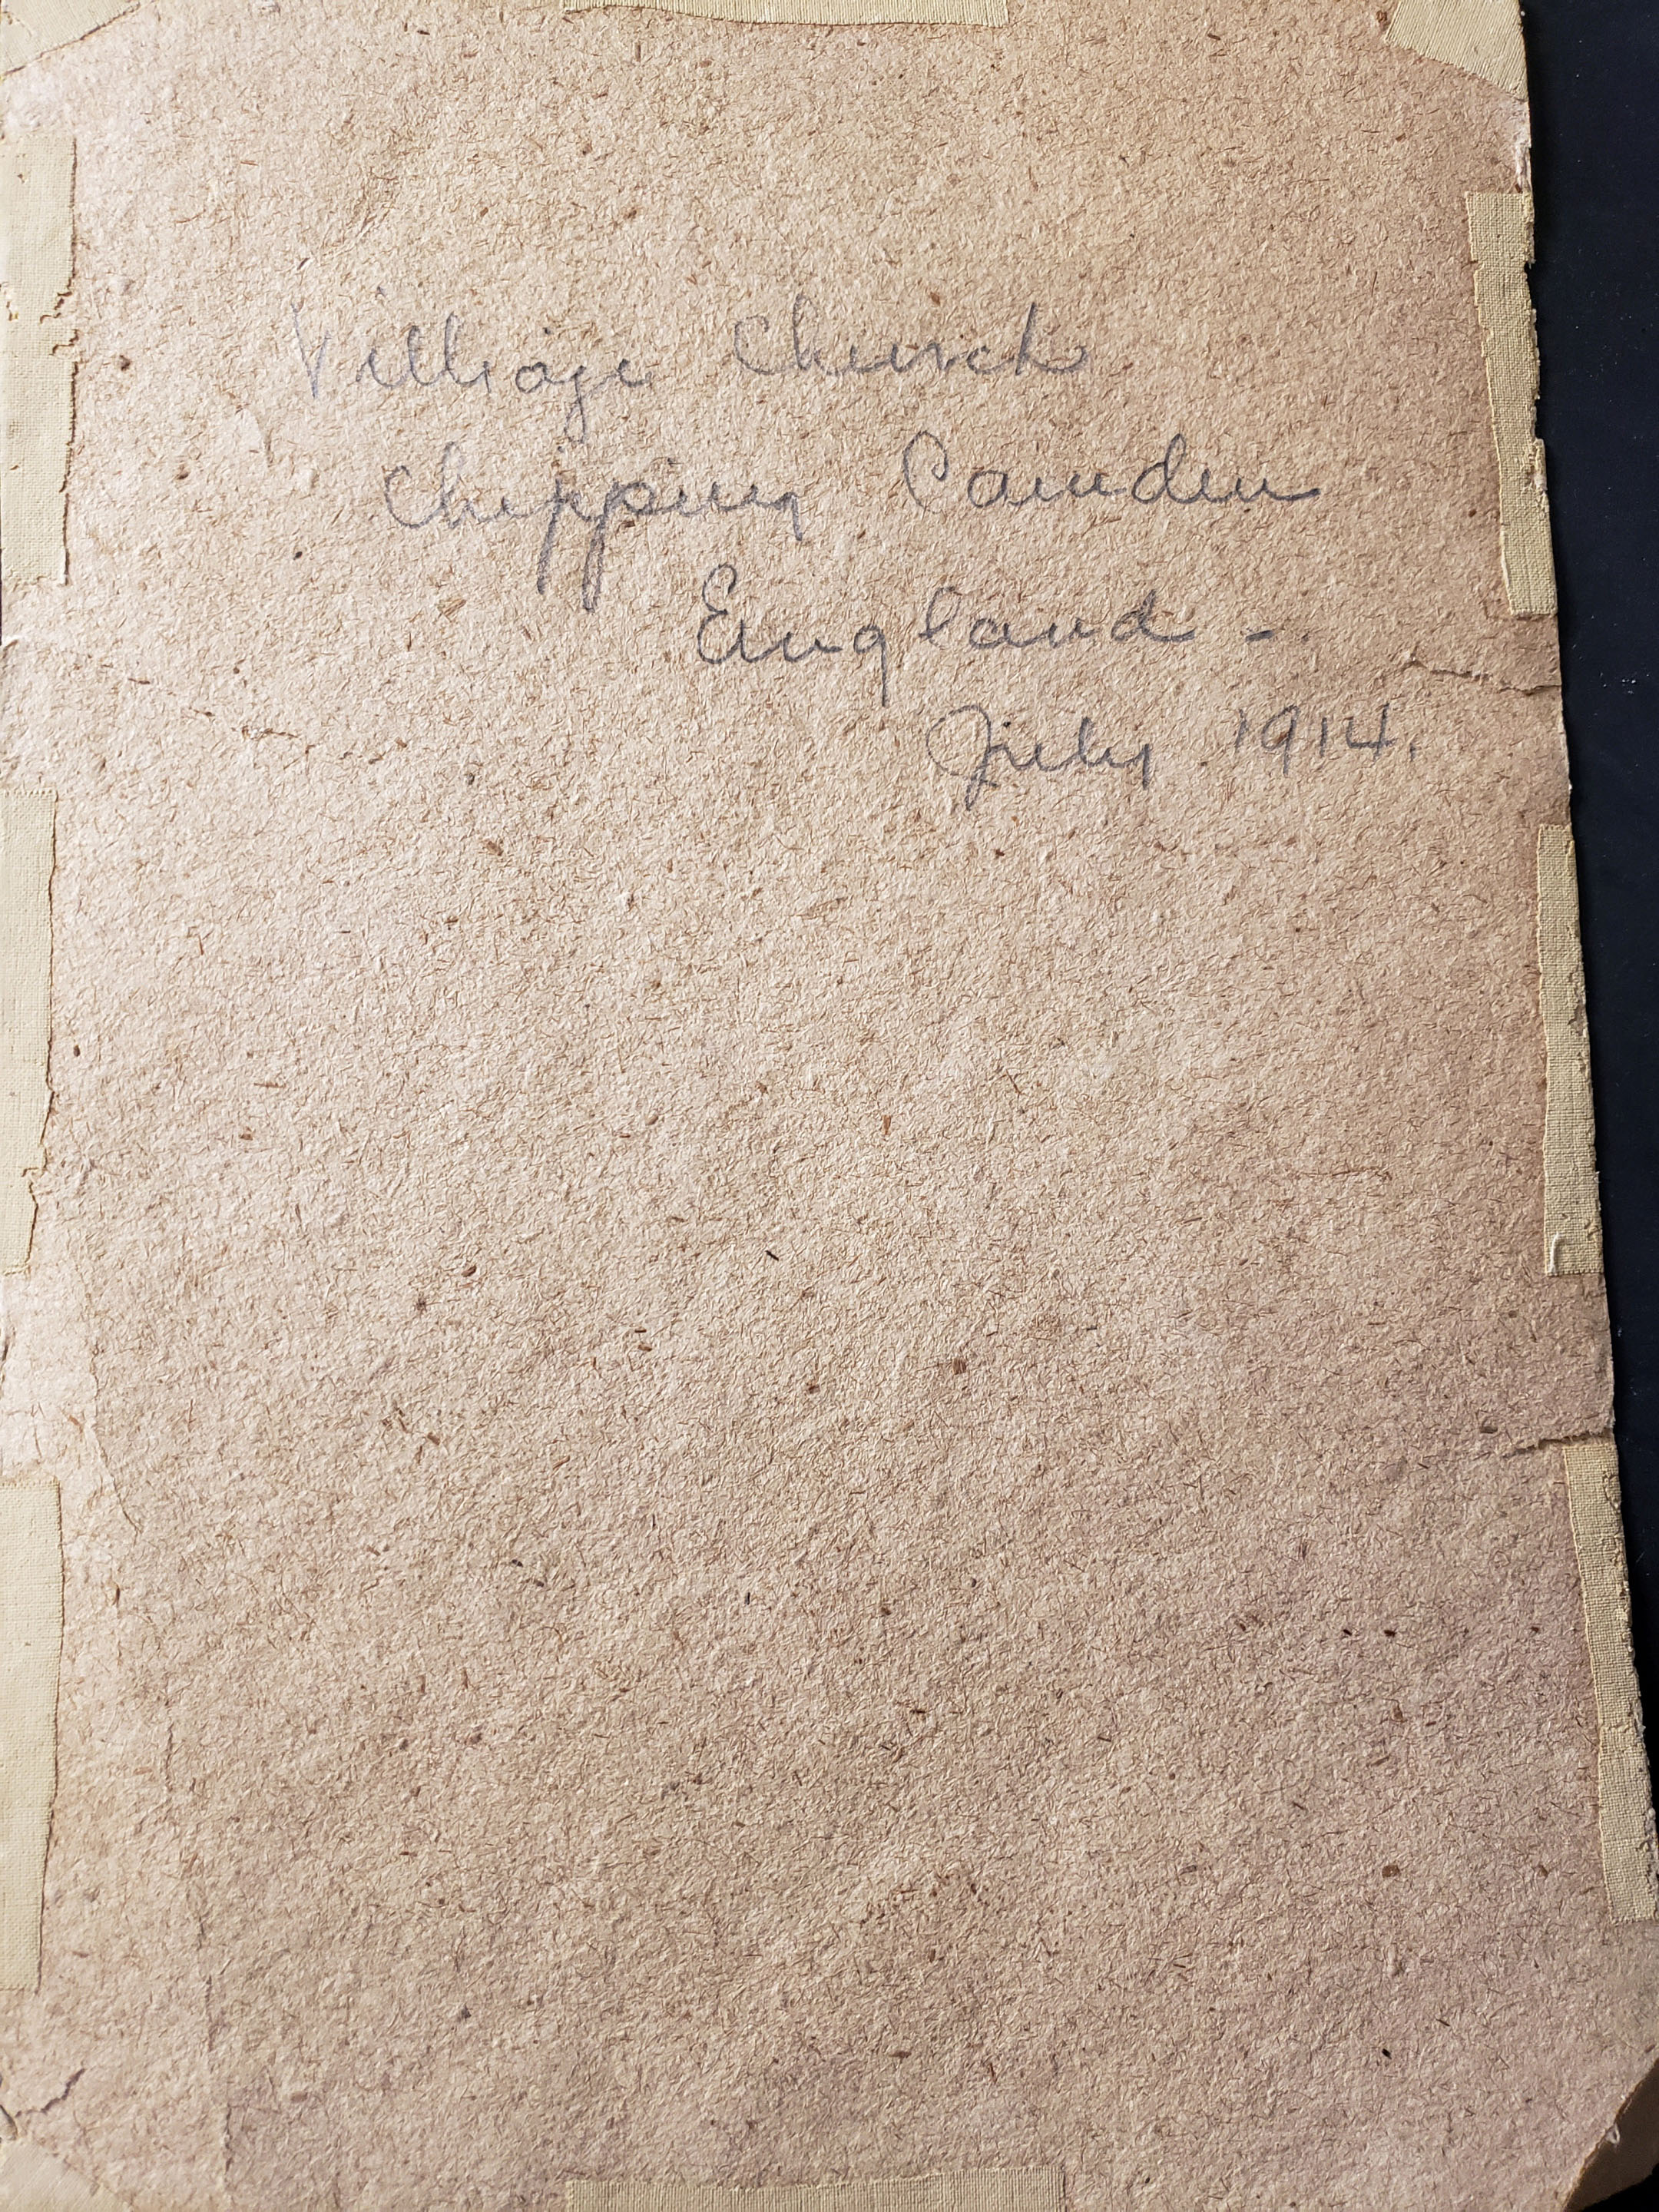 Village Church
Chipping Camden
England -
July 1914.